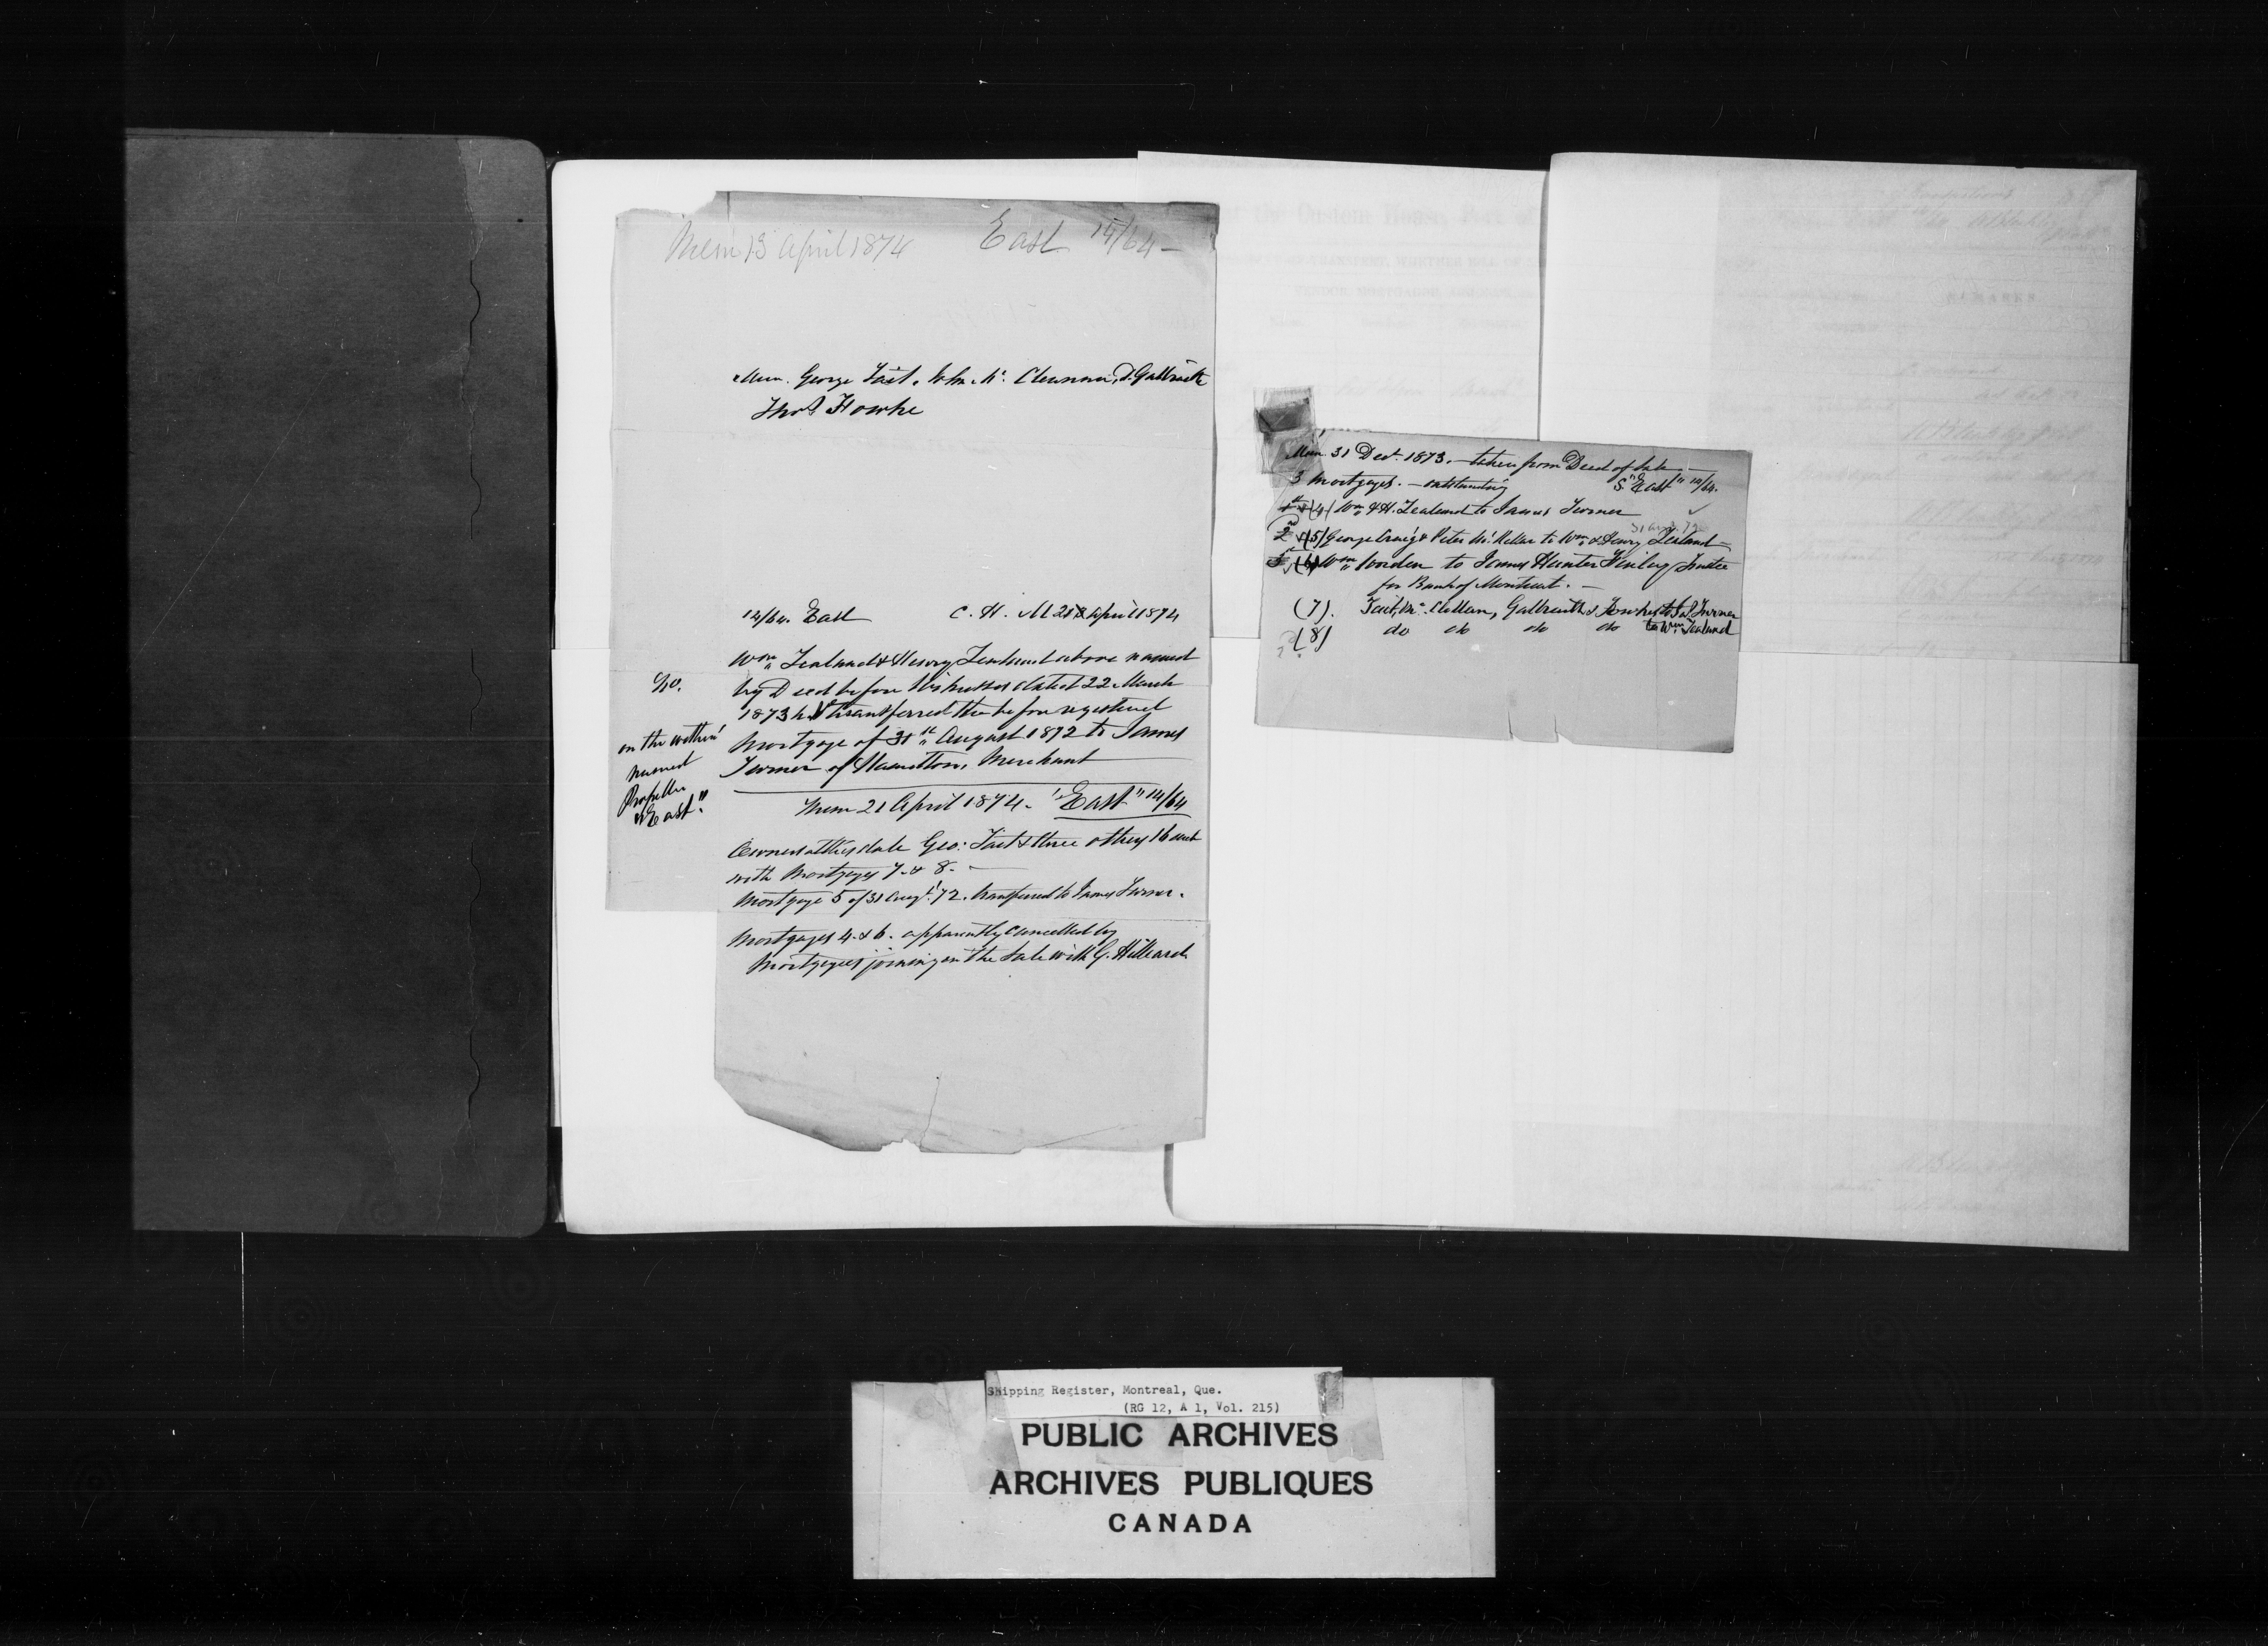 Mem 13 April 1874 East 14/64 -
Mem. George Tait, John Mc. D. Galbraith
Thos Fowke
14/64. East C. H. M 21 April 1874
Wm Zealand & Henry Zealand above named
No. by Deed before Witnesses dated 22 March
1873 transferred the before registered
on the within named Propeller "East."
Mortgage of 31st August 1872 to James
Turner of Hamilton, Merchant
Mem 21 April 1874. "East" 14/64
Owners at this date Geo: Tait & three others 16 each
with Mortgages 7 & 8. -
Mortgage 5 of 31 Augt. '72. transferred to James Turner.
Mortgages 4 & 6. apparently cancelled by
Mortgagees joining in the Sale with G. Hilliard
Mem. 31 Dect. 1873. - taken from Deed of Sale -
3 Mortgages. - outstanding S. "East" 14/64.
(4) Wm & H. Zealand to James Turner ✓
31 Augt. 72
2nd (5) George Craig & Peter McKellar to Wm & Henry Zealand -
(6) Wm Worden to James Hunter Finlay Trustee
for Bank of Montreal. -
(7). Tait, Mc. Clellan, Galbraith & Fowkes to Jas. Turner
(8) do do do do to Wm Zealand
REMARKS
Shipping Register, Montreal, Que.
(RG 12, A 1, Vol. 215)
PUBLIC ARCHIVES
ARCHIVES PUBLIQUES
CANADA